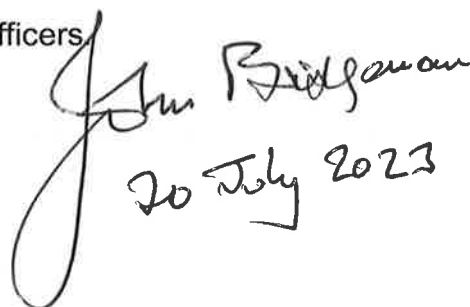 fficers
John Bridgeman
20 July 2023